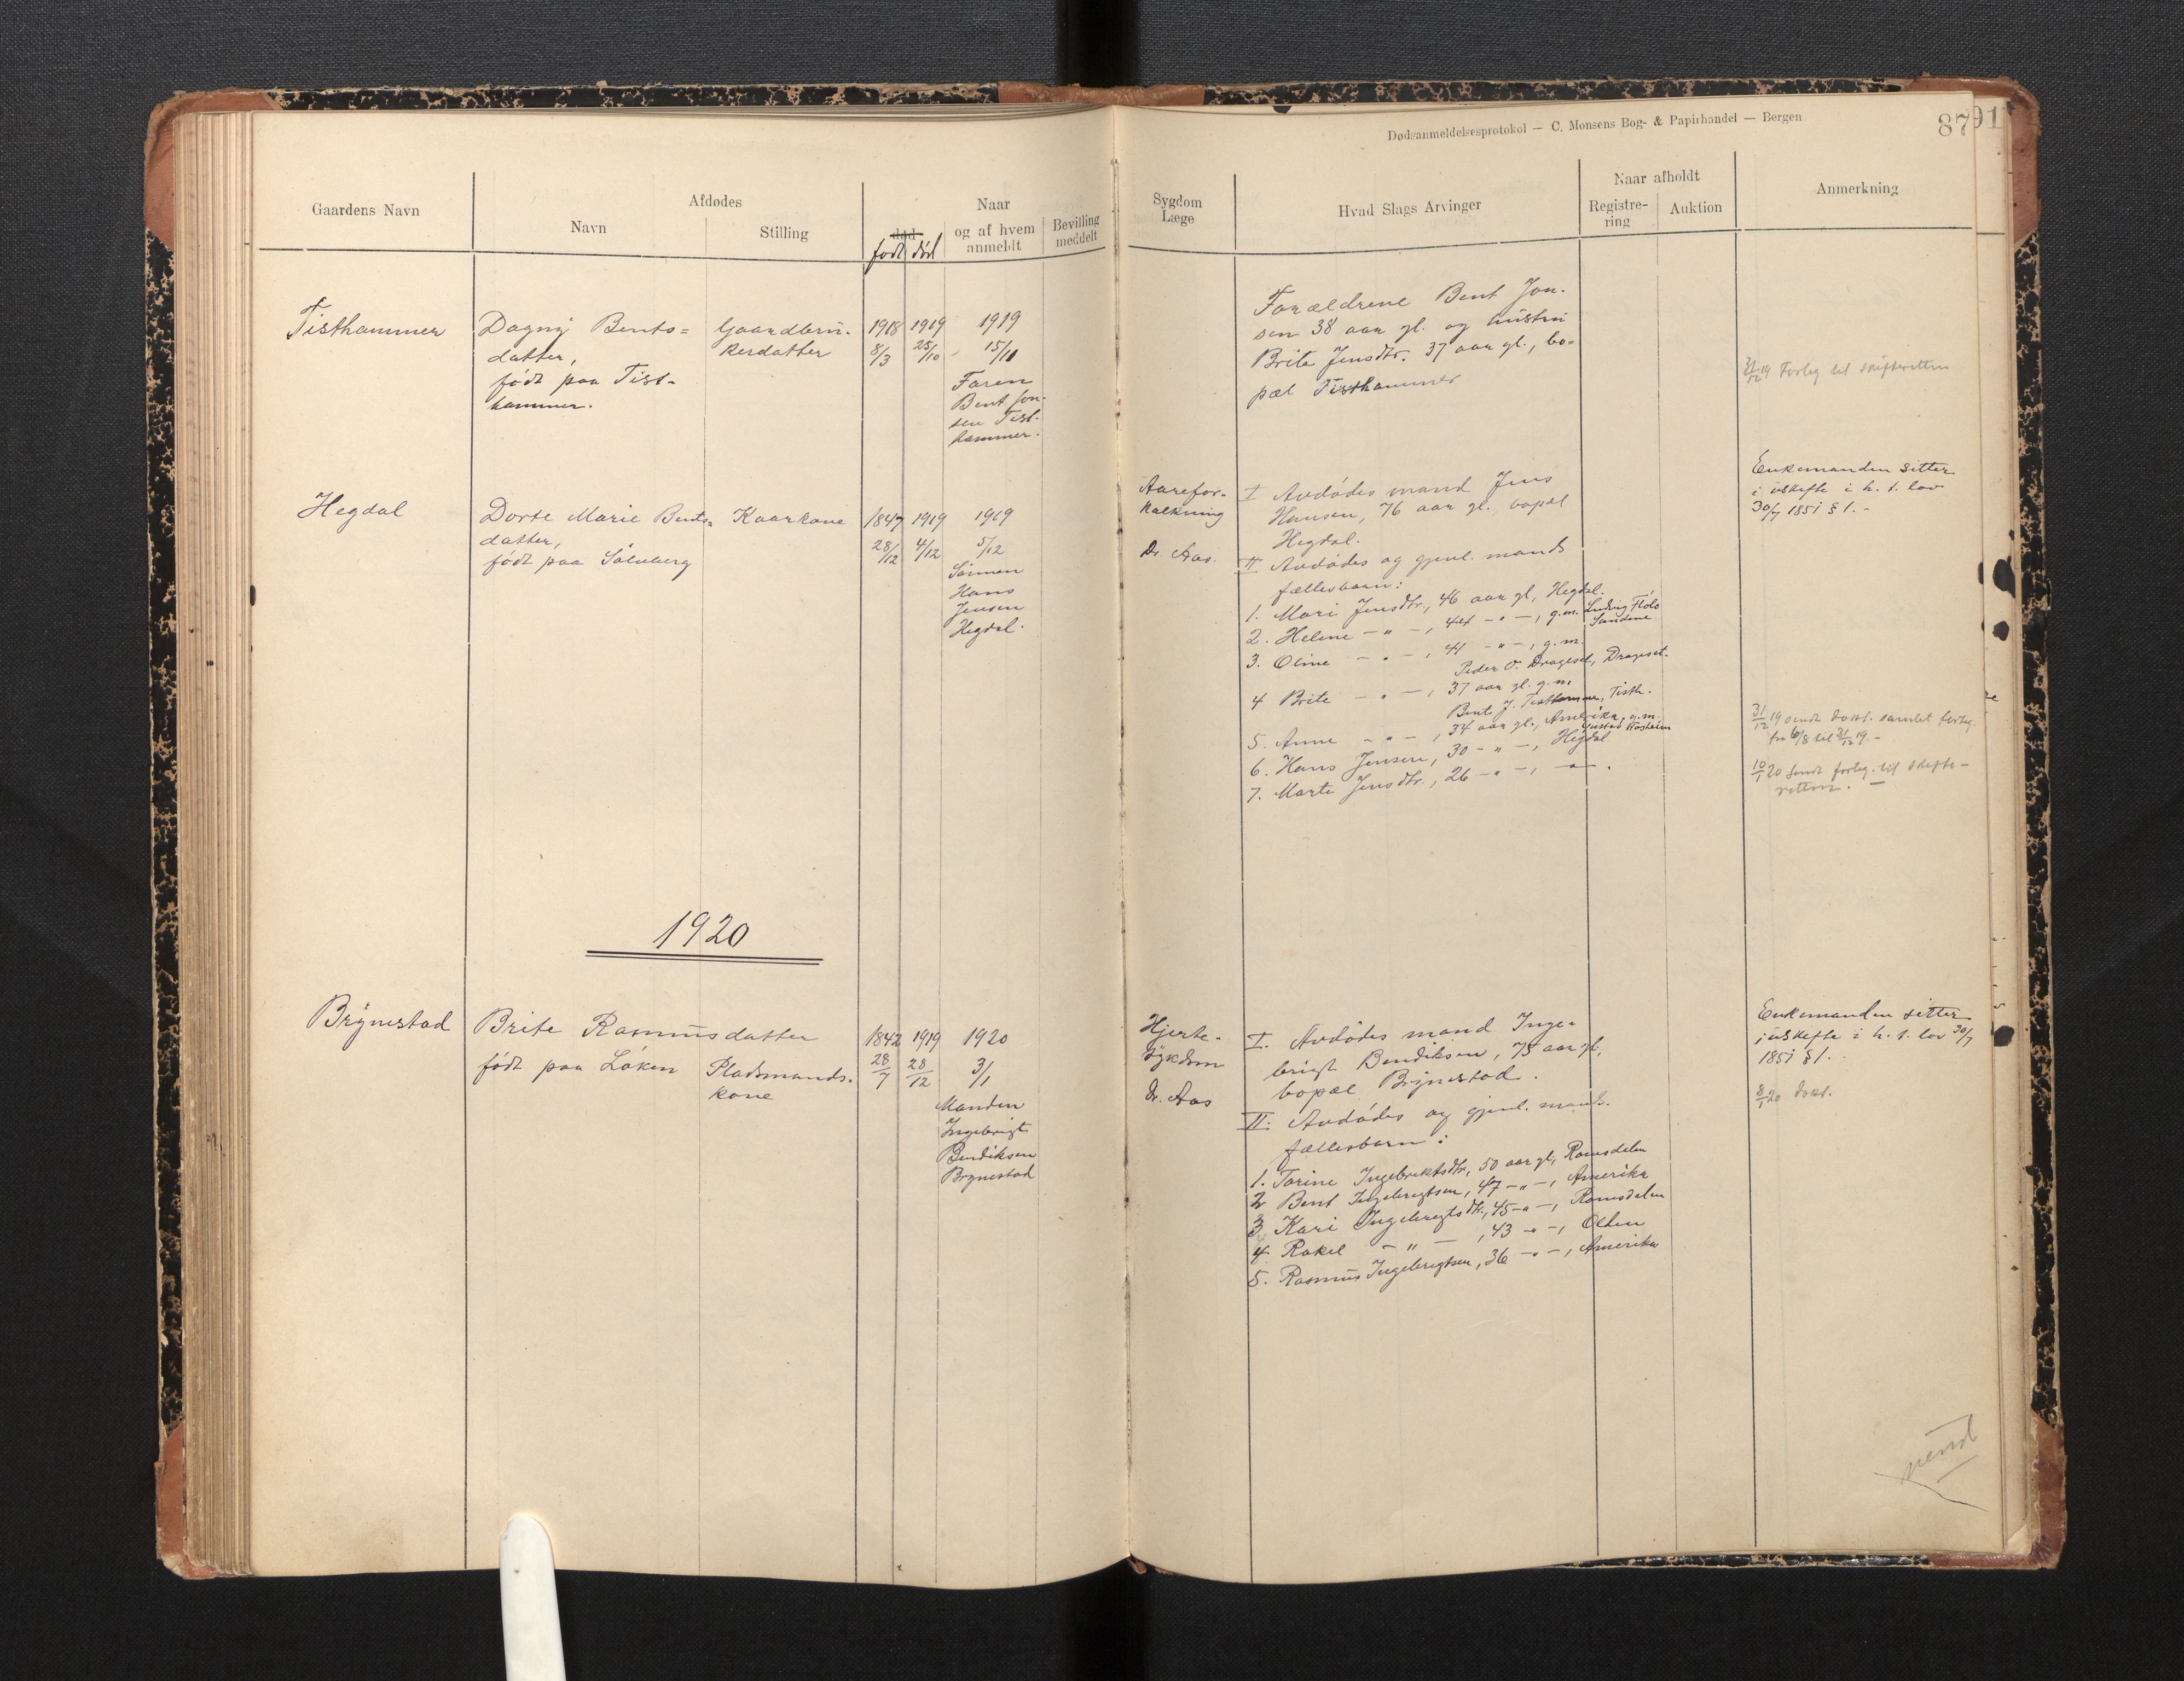 Dødsanmeldelsesprotokol — C. Monsens Bog- & Papirhandel — Bergen
87
91
Gaardens Navn
Afdødes
Navn
Stilling
død
født død
Naar
og af hvem
anmeldt
Bevilling
meddelt
Sygdom
Læge
Hvad Slags Arvinger
Naar afholdt
Registre-
ring
Auktion
Anmerkning
Tisthammer
Dagny Bents=
datter,
født paa Tist-
hammer.
Gaardbru-
kerdatter
1918
8/3
1919
25/10
1919
15/11
Faren
Bent Jon-
sen Tist-
hammer.
Forældrene Bent Jon-
sen 38 aar gl. og hustru
Brite Jensdtr. 37 aar gl., bo-
pæl Tisthammer
31/12 19 Forteg til skifteretten
Hegdal
Dorte Marie Bents=
datter,
født paa Sølvberg
Kaarkone
1847
28/12
1919
4/12
1919
5/12
Sønnen
Hans
Jensen
Hegdal.
Aarefor-
kalkning
Dr. Aas.
I Avdødes mand Jens
Hansen, 76 aar gl. bopæl
Hegdal.
II Avdødes og gjenl. mands
fællesbarn:
1. Mari Jensdtr., 46 aar gl, Hegdal.
2. Helene — " —, 44 — " —, g.m. Ludvig Flølo
Sandene
3. Oline — " —, 41 — " —, g.m.
Peder O. Drageset, Drageset.
4 Brite — " —, 37 aar gl. g.m.
Bent J. Tisthammer, Tisth.
5. Anne — " —, 34 aar gl., Amerika, g.m.
Gustad Aasheim
6. Hans Jensen, 30 — " —, Hegdal
7. Marte Jensdtr., 26 — " —, — " — .
Enkemanden sitter
i uskifte i h. t. lov
30/7 1851 § 1. -
31/12 19 sendt dokt. samlet forteg.
fra 6/8 til 31/12 19. -
10/1 20 Sendt forteg. til skifte-
retten. —
1920
Brynestad
Brite Rasmusdatter
født paa Løken
Pladsmands-
kone
1842
28/7
1919
28/12
1920
3/1
Manden
Ingebrigt
Bendiksen
Brynestad
Hjerte-
sykdom
Dr. Aas
I. Avdødes mand Inge-
brigt Bendiksen, 75 aar gl,
bopæl Brynestad.
II. Avdødes og gjenl. mands.
fællesbarn:
1. Torine Ingebrektsdtr, 50 aar gl, Romsdalen
2 Bent Ingebrigtsen, 47 — " —, Amerika
3 Kari Ingebrigtsdtr., 45 — " —, Romsdalen
4 Rakel — " — , 43 — " —, Olden
5. Rasmus Ingebrigtsen, 36 — " —, Amerika
Enkemanden sitter
i uskifte i h. t. lov 30/7
1851 § 1.
8/1 20 dokt.
vend